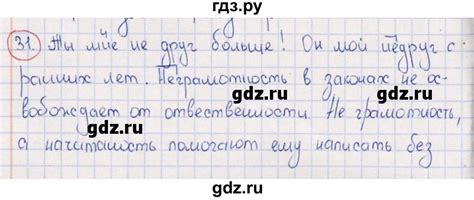 гдз.ру
31. Ты мне не друг больше! Он мой недруг с
ранних лет. Неграмотность в законах не ос-
gdz.ru gdz.ru
вобождает от отвественности. Не грамотность,
gdz.ru gdz.ru
а начитаность помогают ему написать без